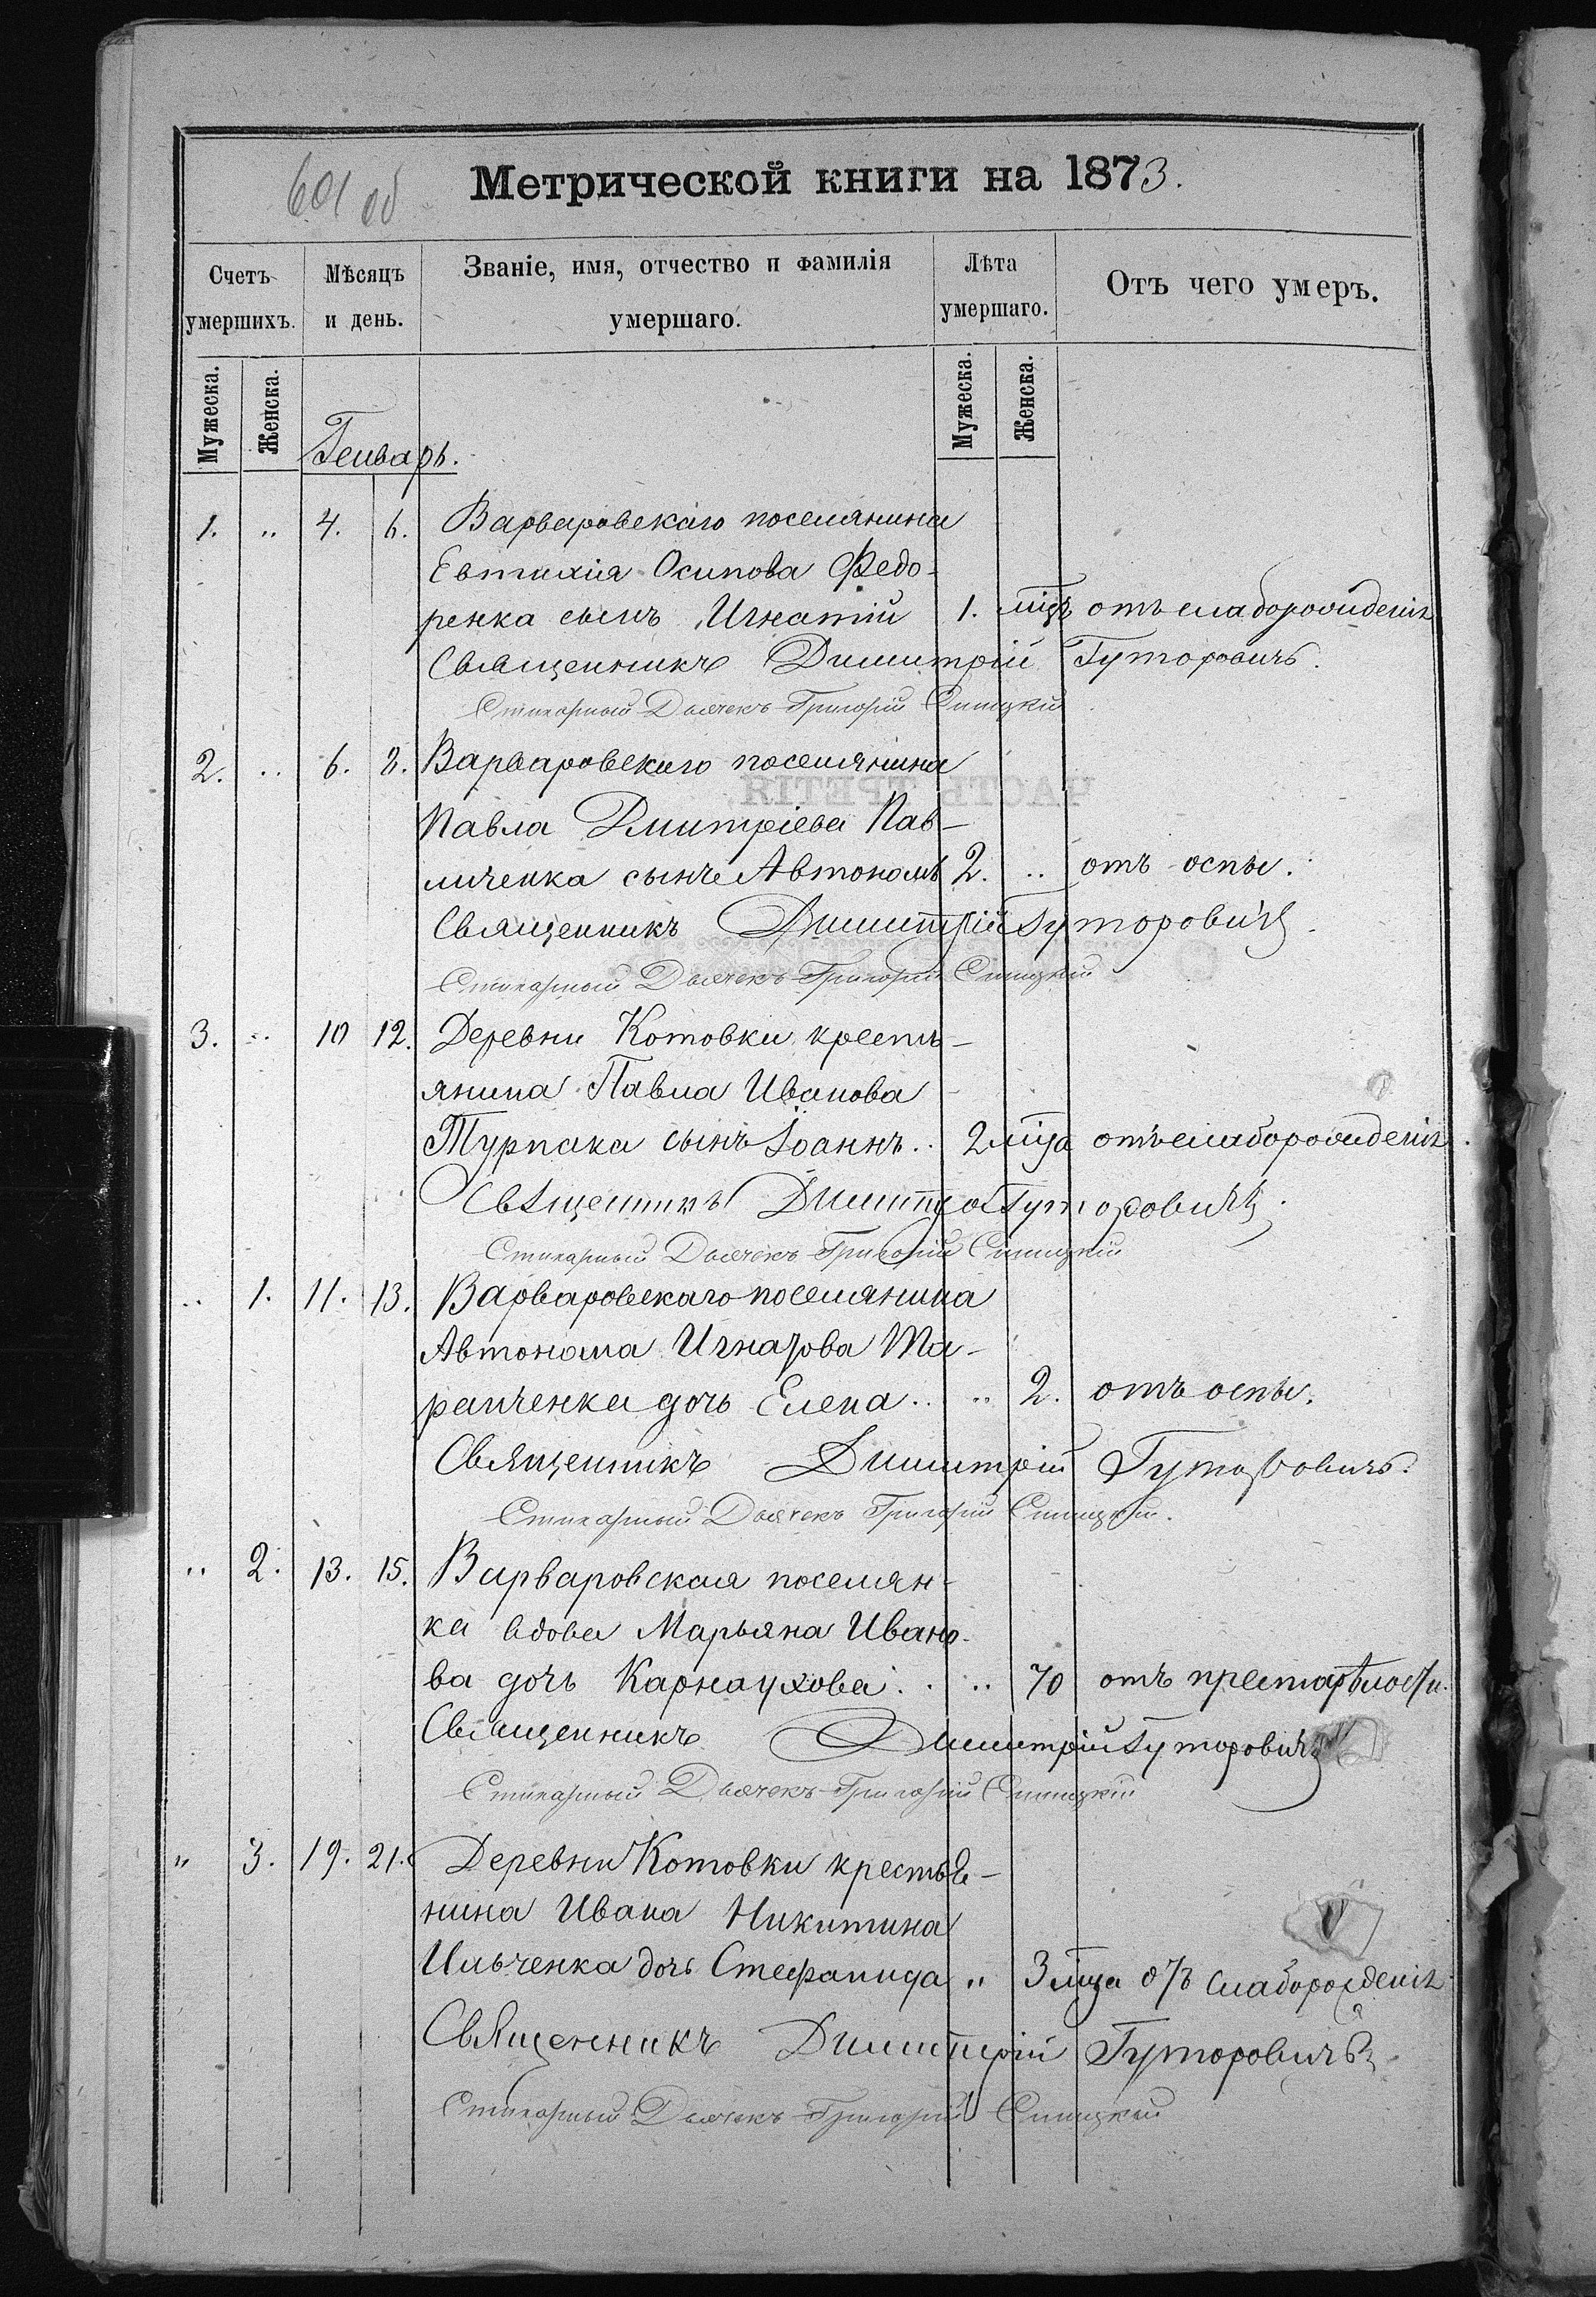 601 об
Метрической книги на 1873.
Счетъ умершихъ.
Мѣсяцъ и день.
Званіе, имя, отчество и фамилія умершаго.
Лѣта умершаго.
Отъ чего умеръ.
Мужеска. Женска. Мужеска. Женска.
Генварь.
1. „ 4. 6. Варваровскаго поселянина
Евтихія Осипова Федо-
ренка сынъ Игнатій 1. мцъ отъ слаборожденія
Священникъ Димитрій Гуторовичъ.
Стихарный Дьячекъ Григорій
2. „ 6. 8. Варваровскаго поселянина
Павла Дмитріева Пав-
личенка сынъ Автономъ 2. „ отъ оспы.
Священникъ Димитрій Гуторовичъ.
Стихарный Дьячекъ Григорій
3. „ 10 12. Деревни Котовки кресть-
янина Павла Иванова
Турпака сынъ Іоаннъ.. 2 мца отъ слаборожденія.
Священникъ Димитрій Гуторовичъ.
Стихарный Дьячекъ Григорій
„ 1. 11. 13. Варваровскаго поселянина
Автонома Игнатова Та-
ранченка дочь Елена.. „ 2. отъ оспы.
Священникъ Димитрій Гуторовичъ.
Стихарный Дьячекъ Григорій
„ 2. 13. 15. Варваровская поселян-
ка вдова Марьяна Ивано-
ва дочь Карнаухова.. „ 70 отъ престарѣлости.
Священникъ Димитрій Гуторовичъ
Стихарный Дьячекъ Григорій
„ 3. 19. 21. Деревни Котовки крестья-
нина Ивана Никитина
Ильченка дочь Стефанида „ 3 мца отъ слаборожденія
Священникъ Димитрій Гуторовичъ
Стихарный Дьячекъ Григорій